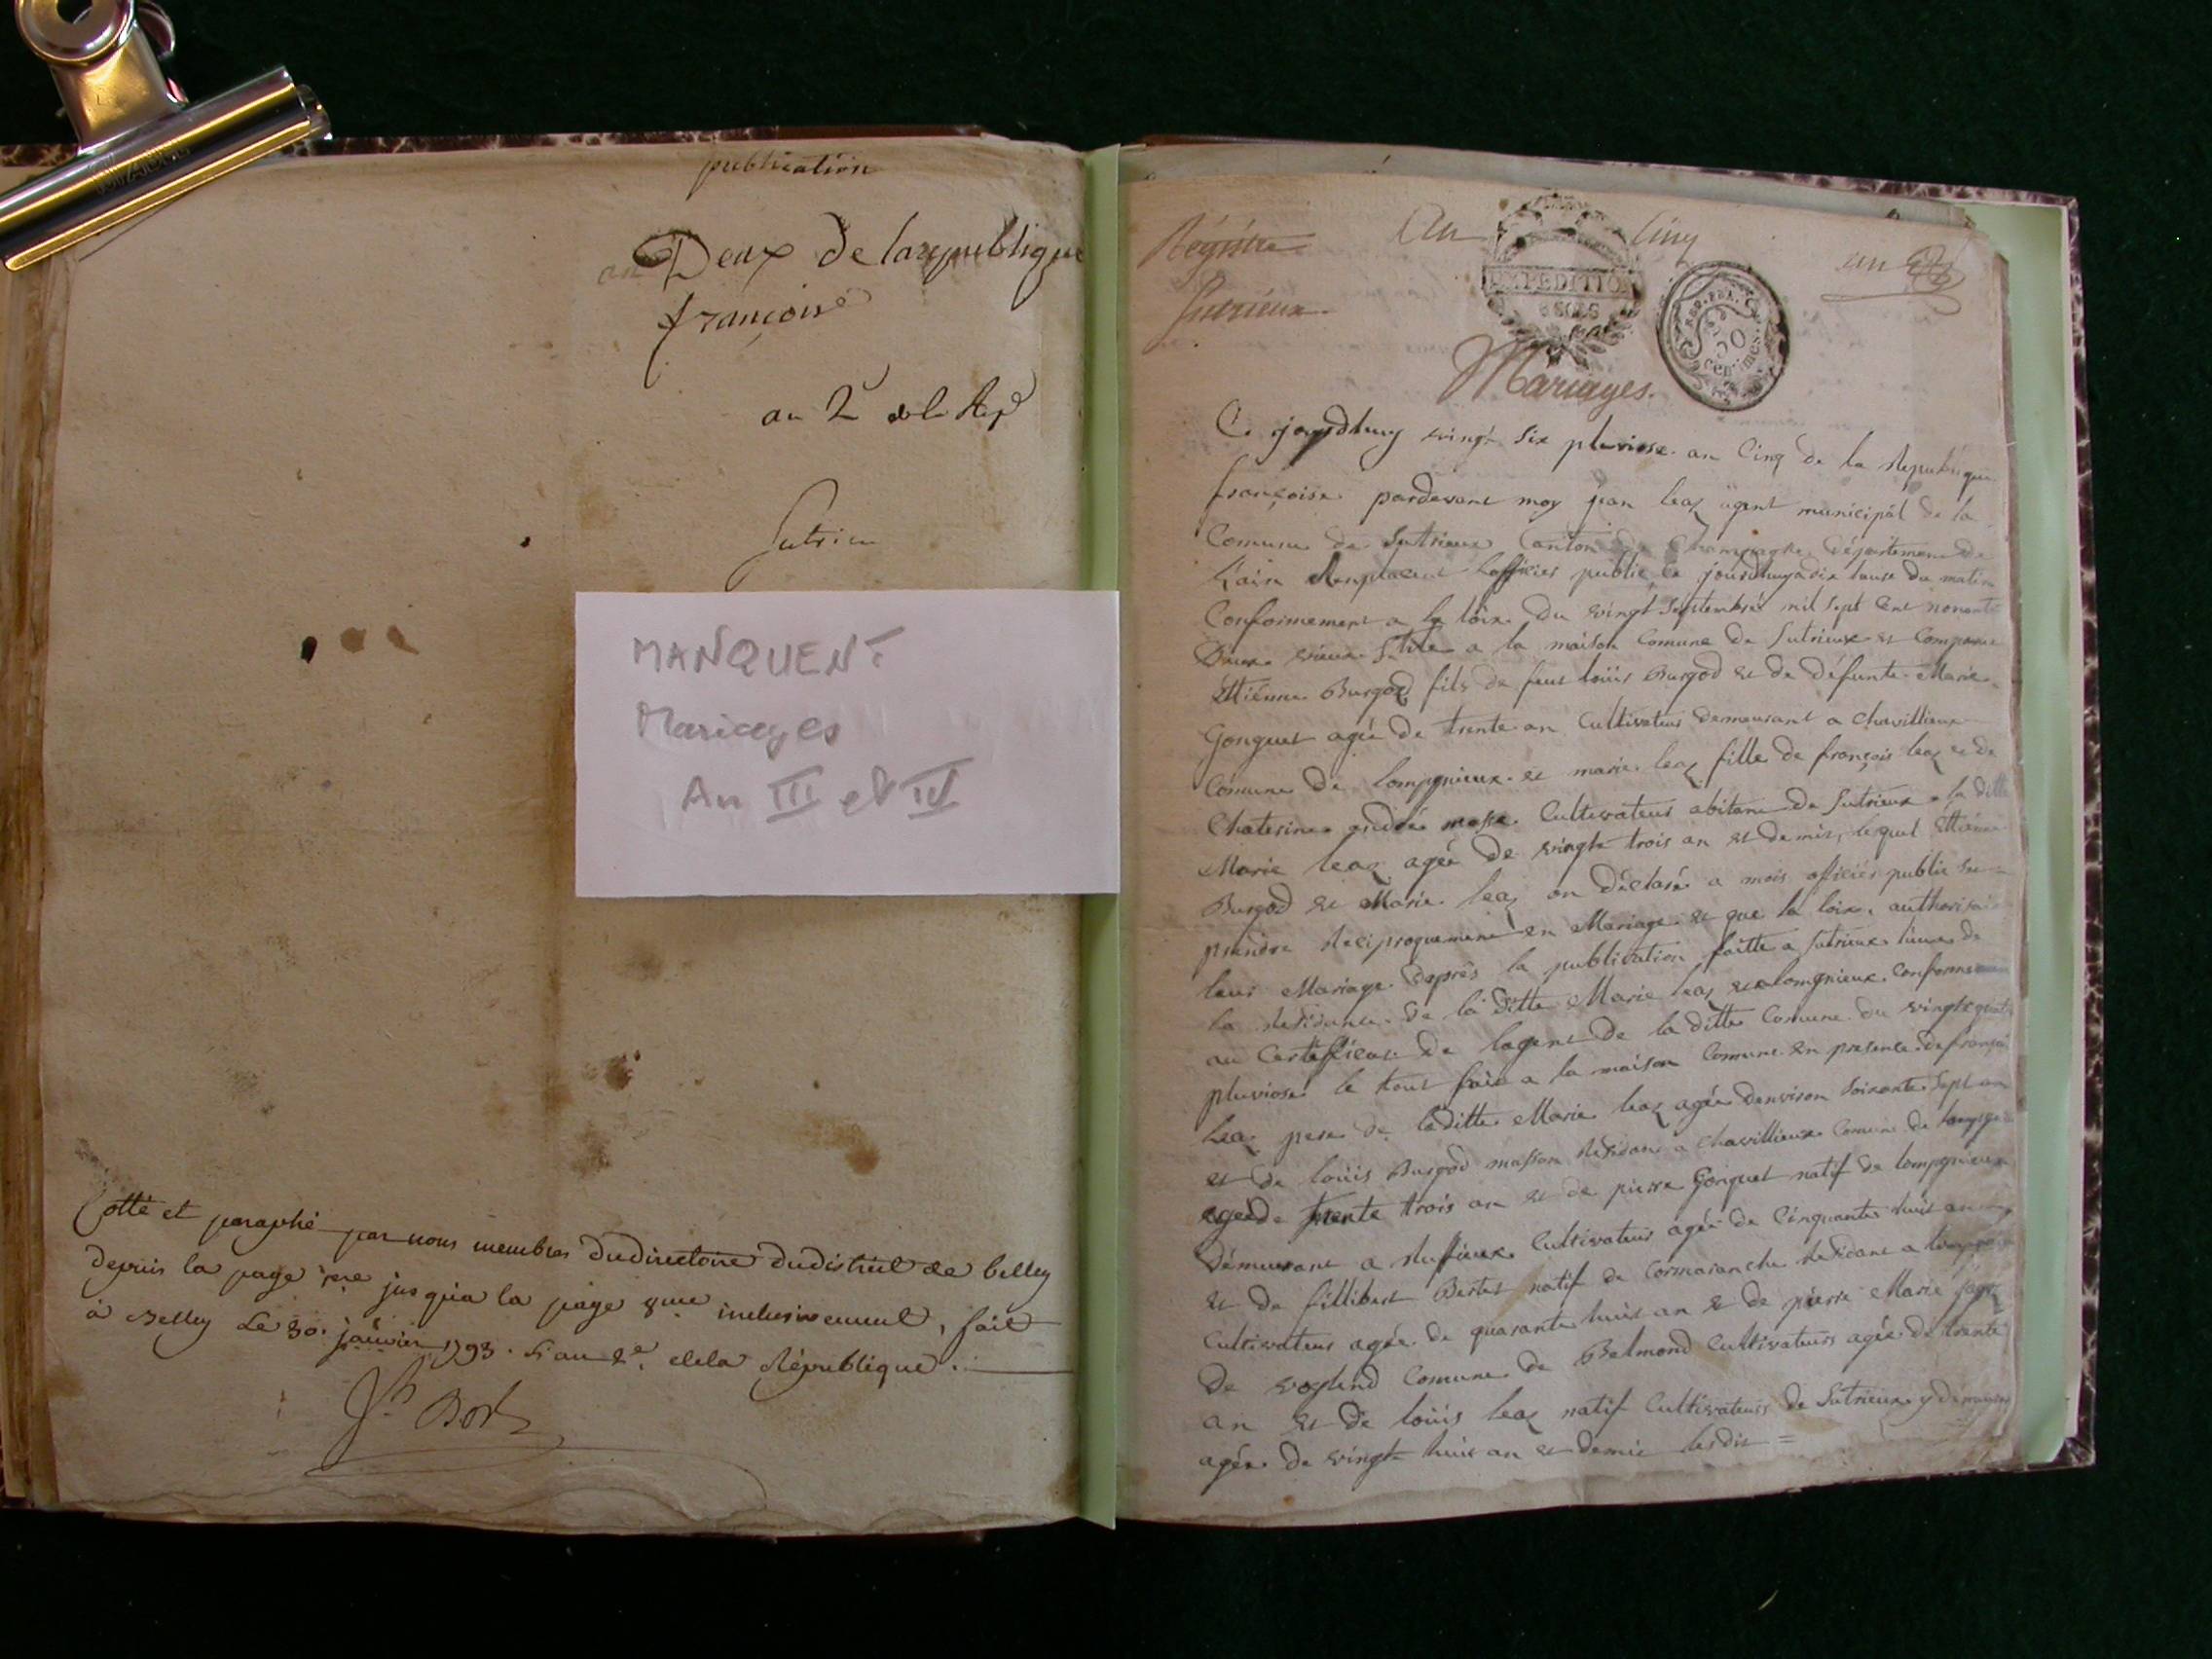 publication
an Deux de la republique
françoise
an 2 de la Rep
Sutrieu
MANQUENT
Mariages
An III et IV
Cotté et paraphé par nous membres du directoire du district de belley
depuis la page 1ere jusqu'a la page 8me inclusivement, fait
à Belley le 30. janvier 1793. an 2e. dela République.
Registre
Sutrieux.
An Cinq
un
EXPEDITION
8 SOLS
REP. FRA.
50
Centimes
Mariages.
Ce jourdhuy vingt Six pluviose an Cinq de la Republique
françoise pardevant moy jean leaz agent municipal de la
Comune de Sutrieux Canton de Champagne Département de
L'ain Remplacent Lofficier public, ce jourdhuy a dix heure du matin
Conformement a la loix du vingt Septembre mil sept Cent nonante
Deux vieux Stile a la maison Comune de Sutrieux et Comparu
Ettienne Burgod fils de feut loüis Burgod et de défunte Marie
Gonguet agée de trente an Cultivateur demeurant a Chavillieux
Comune de lompgnieux et marie leaz fille de françois leaz et de
Chaterine andré masse Cultivateur abitant de Sutrieux la ditte
Marie leaz agée de vingt trois an et demis, lequel Ettienne
Burgod et Marie leaz on déclaré a mois officier public se
prendre Reciproquement en Mariage et que la loix authorisait
leur Mariage daprès la publication faitte a Sutrieux lieux de
la Residance de la ditte Marie leaz et a lompnieux Conformement
au Certifficat de lagent de la ditte Comune du vingt quatre
pluviose le tout fait a la maison Comune en presence de françois
Lea pere de laditte Marie leaz agée denviron Soixante Sept an
et de loüis Burgod masson Residant a Chavillieux Comune de
agée de trente trois an et de pierre Gonguet natif de lompgnieux
démeurant a Ruffieux Cultivateur agée de Cinquante huit an
et de fillibert Bertet natif de Cormaranche Residant a
Cultivateur agée de quarante huit an et de pierre Marie
de voglend Comune de Belmond Cultivateur agée de trente
an et de loüis leaz natif Cultivateur de Sutrieux y demeurant
agée de vingt huit an et demie lesdit =